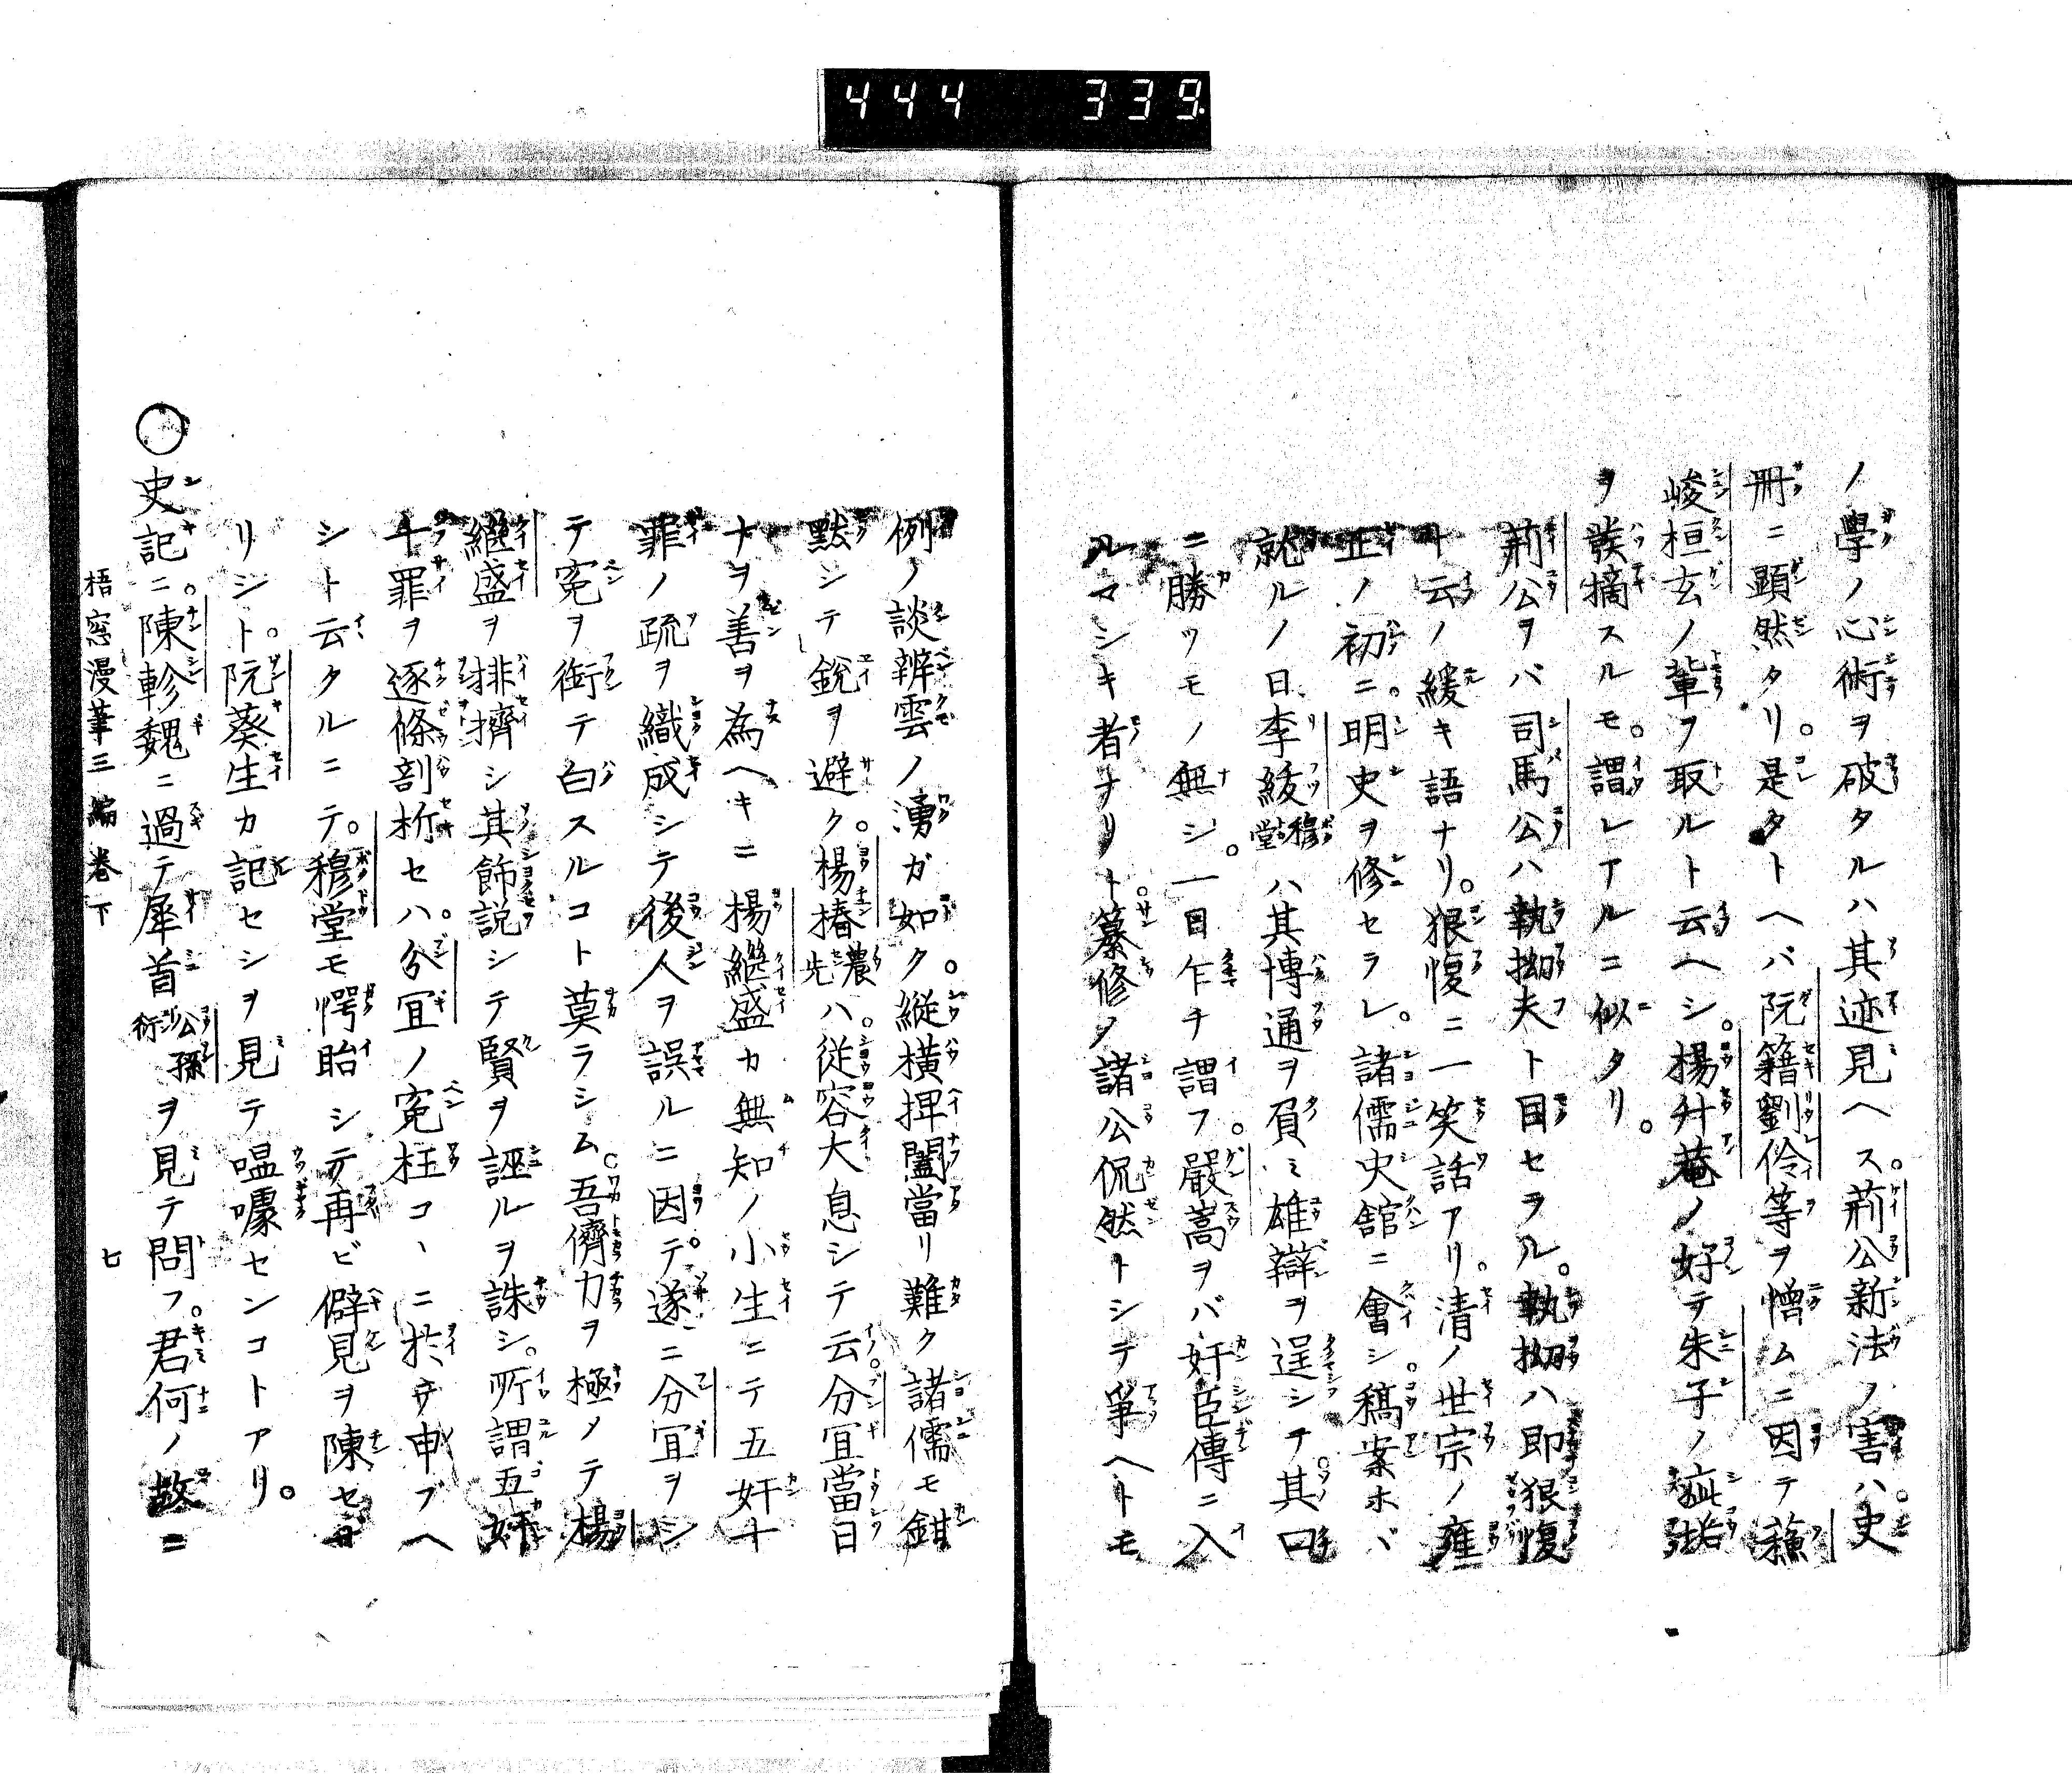 444 339
ノ學ノ心術ヲ破タルハ其迹見ヘス。荊公新法ノ害ハ。史
冊ニ顕然タリ。是タトヘバ阮籍劉伶等ヲ憎ムニ因テ蘓
峻桓玄ノ輩ヲ取ルト云ヘシ。楊升菴ノ好テ朱子ノ疵
ヲ發摘スルモ。謂レアルニ似タリ。
荊公ヲバ司馬公ハ執拗夫ト目セラル。執拗ハ即狠愎
ト云ノ緩キ語ナリ。狠愎ニ一笑話アリ。清ノ世宗ノ雍
正ノ初ニ。明史ヲ修セラレ。諸儒史舘ニ會シ。稿案ホヾ
就ルノ日李紱穆堂ハ其博通ヲ負ミ雄辯ヲ逞シテ其口
ニ勝ツモノ無シ。一日乍チ謂フ。嚴嵩ヲバ奸臣傳ニ入
ルマシキ者ナリト。纂修ノ諸公侃然トシテ爭ヘトモ
例ノ談辨雲ノ湧ガ如ク。縦横捭闔當リ難ク諸儒モ鉗
黙シテ鋭ヲ避ク。楊椿農先ハ。従容大息シテ云。分宜當日
ナヲ善ヲ為ヘキニ楊繼盛カ無知ノ小生ニテ五奸十
罪ノ疏ヲ織成シテ後人ヲ誤ルニ因テ。遂ニ分宜ヲシ
テ寃ヲ銜テ白スルコト莫ラシム。吾儕力ヲ極ノテ楊
継盛ヲ排擠シ其飾説シテ賢ヲ誣ルヲ誅シ。所謂五奸
十罪ヲ逐條剖析セハ。分宜ノ寃枉コヽニ於テ申ブヘ
シト云タルニテ。穆堂モ愕眙シテ再ビ僻見ヲ陳セザ
リシト。阮葵生カ記セシヲ見テ嗢噱センコトアリ。
○史記ニ。陳軫魏ニ過テ犀首公孫衍ヲ見テ問フ。君何ノ故ニ
梧窓漫筆三編巻下 七